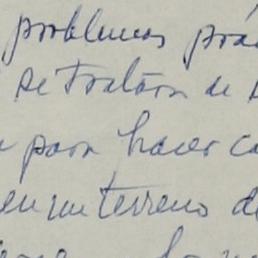 problemas prá
se tratan de
para hacer ca
en un terreno de